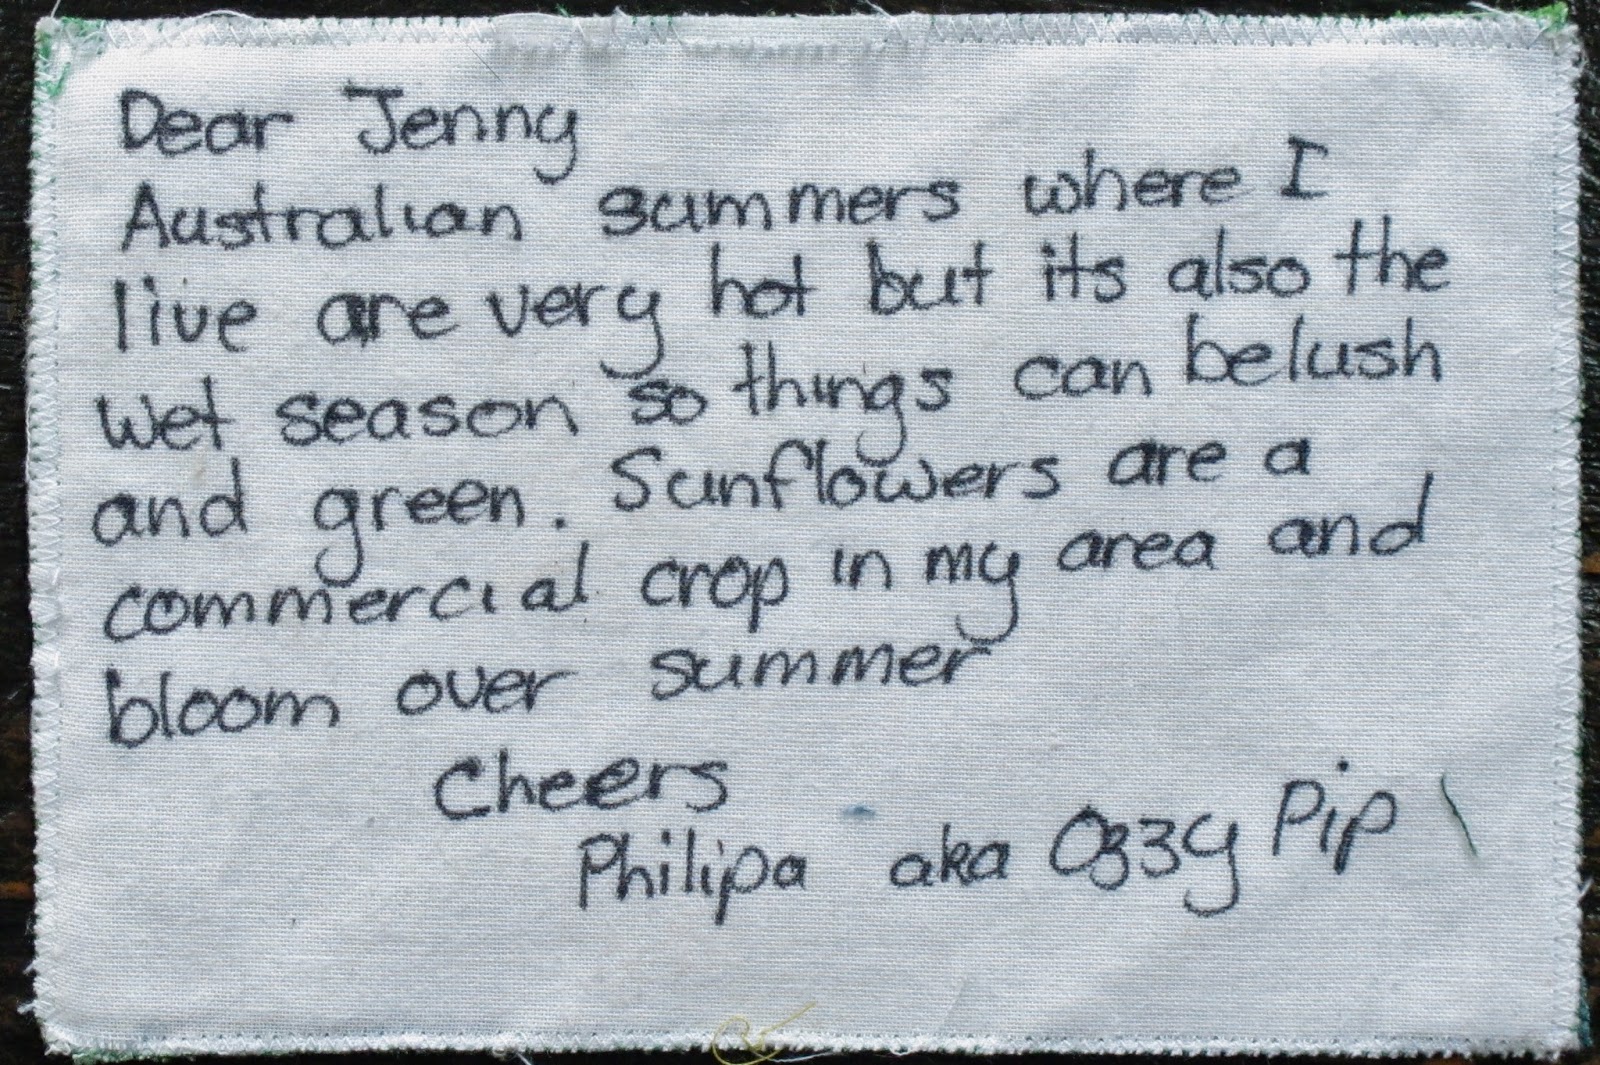 Dear Jenny
Australian summers where I
live are very hot but its also the
wet season so things can be lush
and green. Sunflowers are a
commercial crop in my area and
bloom over summer
Cheers
Philipa aka Ozzy Pip